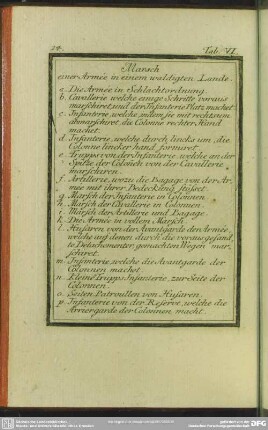 14. Tab. VI.
Marsch
einer Armée in einem waldigten Lande.
a. Die Armée in Schlachtordnung.
b. Cavallerie, welche einige Schritte voraus
marschiret, und der Infanterie Platz machet.
c. Infanterie, welche, indem sie mit rechts um
abmarschiret, die Colonne rechter Hand
machet.
d. Infanterie, welche durch lincks um, die
Colonne lincker hand formiret.
e. Trupps von der Infanterie, welche an der
Spitze der Colonen von der Cavallerie
marschiren.
f. Artillerie, wozu die Bagage von der Ar-
mée mit ihrer Bedeckung stösset.
g. Marsch der Infanterie in Colonnen.
h. Marsch der Cavallerie in Colonnen.
i. Marsch der Artillerie und Bagage.
k. Die Armée in vollem Marsch.
l. Husaren, von der Avantgarde der Armée,
welche auf denen durch die voraus gesand-
te Detachementer gemachten Wegen mar-
schiret.
m. Infanterie, welche die Avantgarde der
Colonnen machet.
n. Kleine Trupps Infanterie, zur Seite der
Colonnen.
o. Seiten Patrouillen von Husaren.
p. Infanterie von der Reserve, welche die
Arriergarde der Colonnen macht.